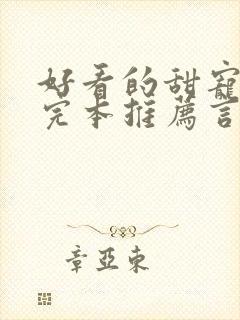 好看的甜寵
完本推薦言
章亞東